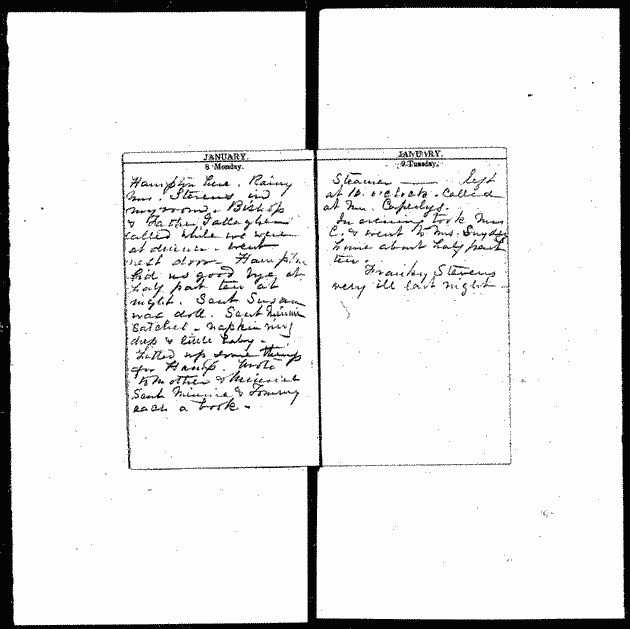 JANUARY.
8 Monday.
Hampton here. Rainy
Mrs. Stevens in
my room. Bishop
& Father Gallagher
called while we were
at dinner. Went
next door. Hampton
bid us good bye at
half past ten at
night. Sent Susan
wax doll. Sent Minnie
satchel. napkin ring
cup & little baby.
Fitted up some things
for Hamp. Wrote
to Mother &
Sent Minnie & Tommy
each a book.
JANUARY.
9 Tuesday.
Steamer —— left
at 12 o'clock. Called
at Mrs.
In evening took Mrs
C. & went to Mrs. Snyder
home about half past
ten.
Franky Stevens
very ill last night.